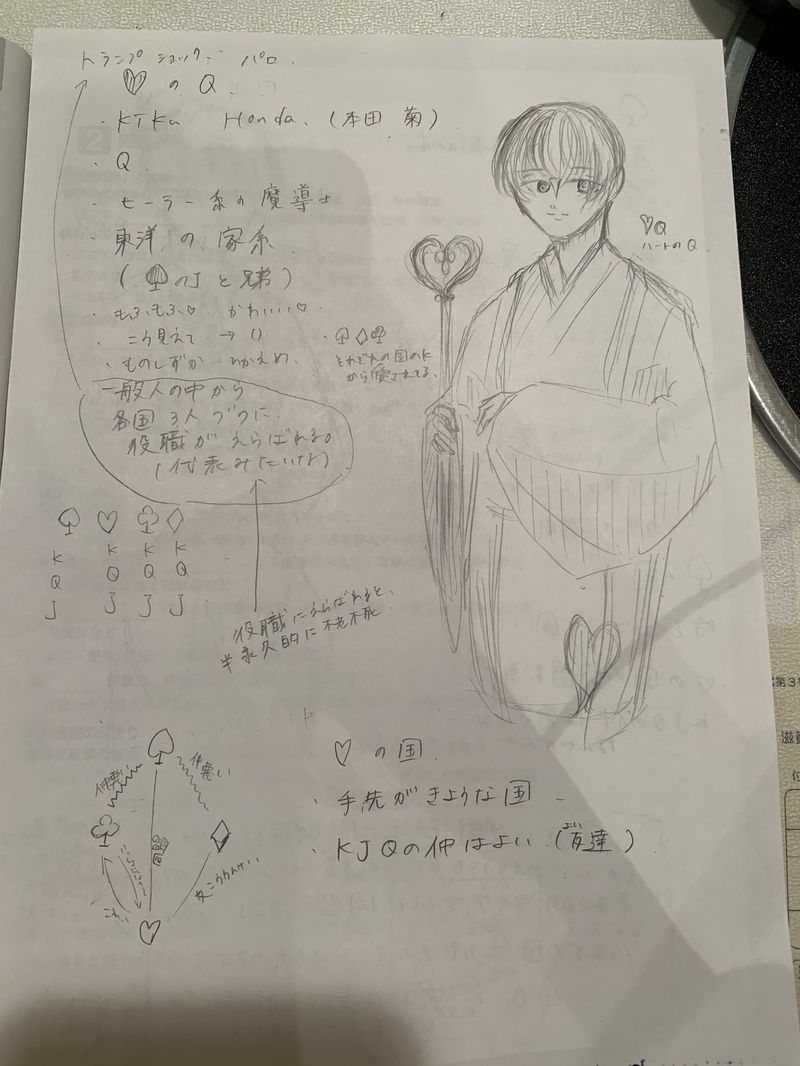 トランプ ショック パロ
♡ の Q
・KIKu Honda. (本田 菊)
・Q
・ヒーラー系の魔導士
・東洋 の 家系
(♤のJと兄弟)
・もふもふ♡ かわいい♡
・こう見えて →
・ものしずか
・♤♢♧
それぞれの国のK
から愛されてる.
一般人の中から
各国3人づつに.
役職がえらばれる。
(代表みたいな)
♤ ♡ ♧ ♢
K K K K
Q Q Q Q
J J J J
役職にえらばれると、
半永久的に不老不死
♡Q
ハートのQ
仲悪い
仲悪い
♡ の 国
・手先がきような国
・KJQの仲はよい (友達)
よい